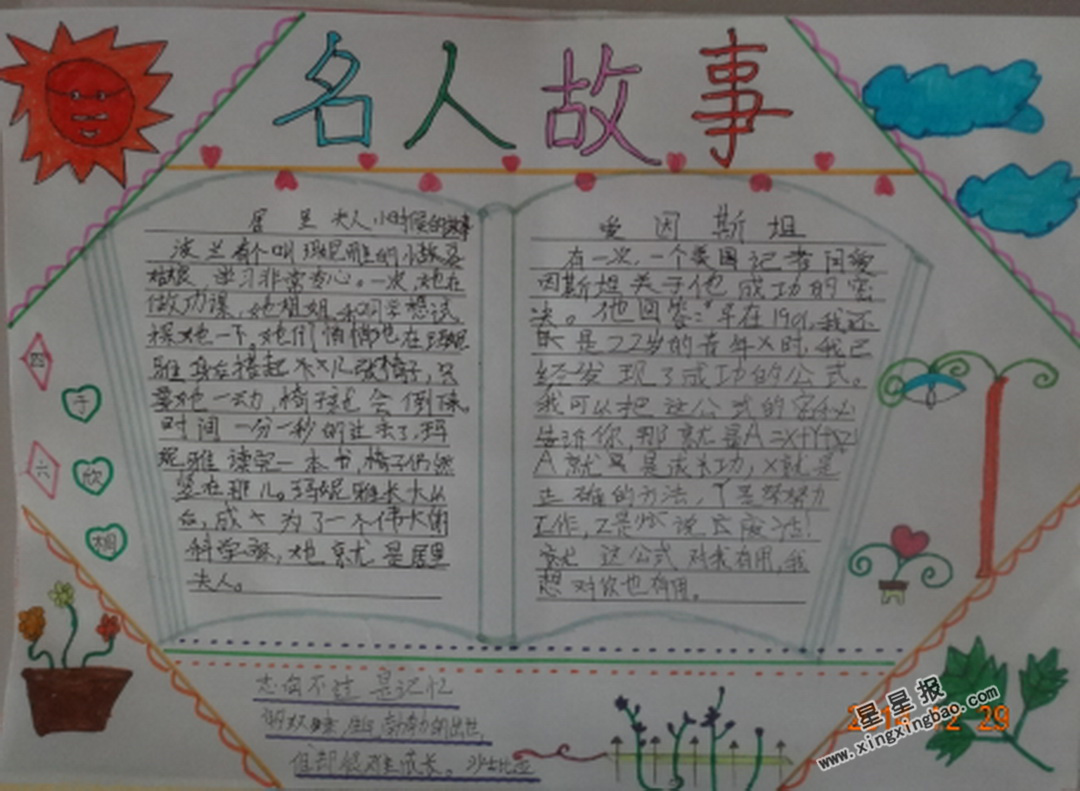 名人故事
居里夫人小时候的故事
波兰有个叫玛妮雅的小
姑娘,学习非常专心。一次,她在
做功课,她姐姐和同学想试
探她一下。她们悄悄地在玛妮
雅身后搭起 几张椅子,只
要她一动,椅子就会倒下来。
时间一分一秒的过去了,玛
妮雅读完一本书,椅子仍然
竖在那儿。玛妮雅长大以
后,成 为了一个伟大的
科学家,她就是居里
夫人。
爱因斯坦
有一次,一个美国记者问爱
因斯坦关于他成功的密
决。他回答:"早在1901,我还
是22岁的青年 时,我已
经发现了成功的公式。
我可以把这公式的密秘
告诉你,那就是A=X+Y+Z!
A就是成功,X就是
正确的方法,Y是努力
工作,Z是少说废话!
这公式对我有用,我
想对你也有用。
四
六
于
欣
桐
志向不过是记忆
的奴隶,生气勃勃的出世,
但却很难成长。沙士比亚
星星报
www.xingxingbao.com
12 29